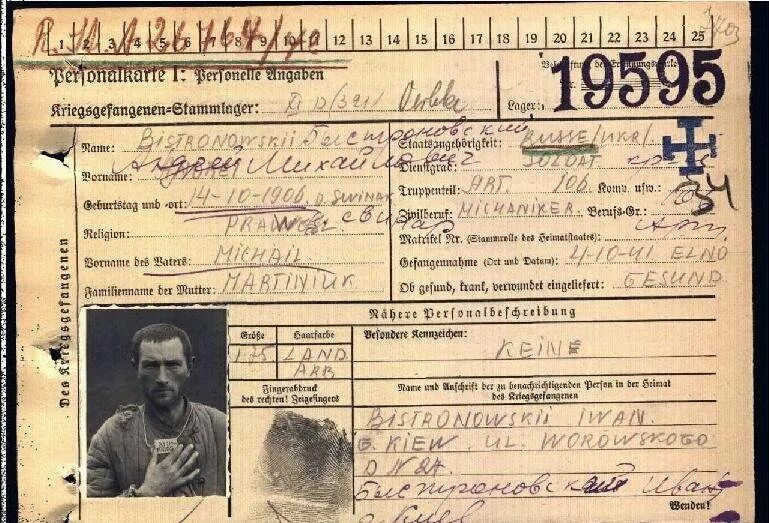 R. 31 N 26764/40
1 2 3 4 5 6 7 8 9 10 11 12 13 14 15 16 17 18 19 20 21 22 23 24 25
Personalkarte I: Personelle Angaben
Kriegsgefangenen=Stammlager: XI D/321/ Oerbke
Lager:
19595
Des Kriegsgefangenen
Name: BISTRONOWSKII Быстроновский
Vorname: Андрей Михайлович
Geburtstag und =ort: 14-10-1906. D. SWINAR
свинар
Religion: PRAWOSL.
Vorname des Vaters: MICHAIL
Familienname der Mutter: MARTINIUK
Staatsangehörigkeit: RUSSE/UKR/
Dienstgrad: SOLDAT
Truppenteil: ART. 106. Komp. usw.:
34
Zivilberuf: MICHANIKER. Berufs=Gr.:
Matrikel Nr. (Stammrolle des Heimatstaates):
Gefangennahme (Ort und Datum): 4-10-41 ELNO
Ob gesund, krank, verwundet eingeliefert: GESUND
Nähere Personalbeschreibung
Größe
1.75
Haarfarbe
Besondere Kennzeichen:
KEINE
Fingerabdruck
des rechten! Zeigefingers
Name und Anschrift der zu benachrichtigenden Person in der Heimat
des Kriegsgefangenen
BISTRONOWSKII IWAN
G. KIEW. UL. WOROWSKOGO
Быстроновский Иван
г. Киев
Wenden!